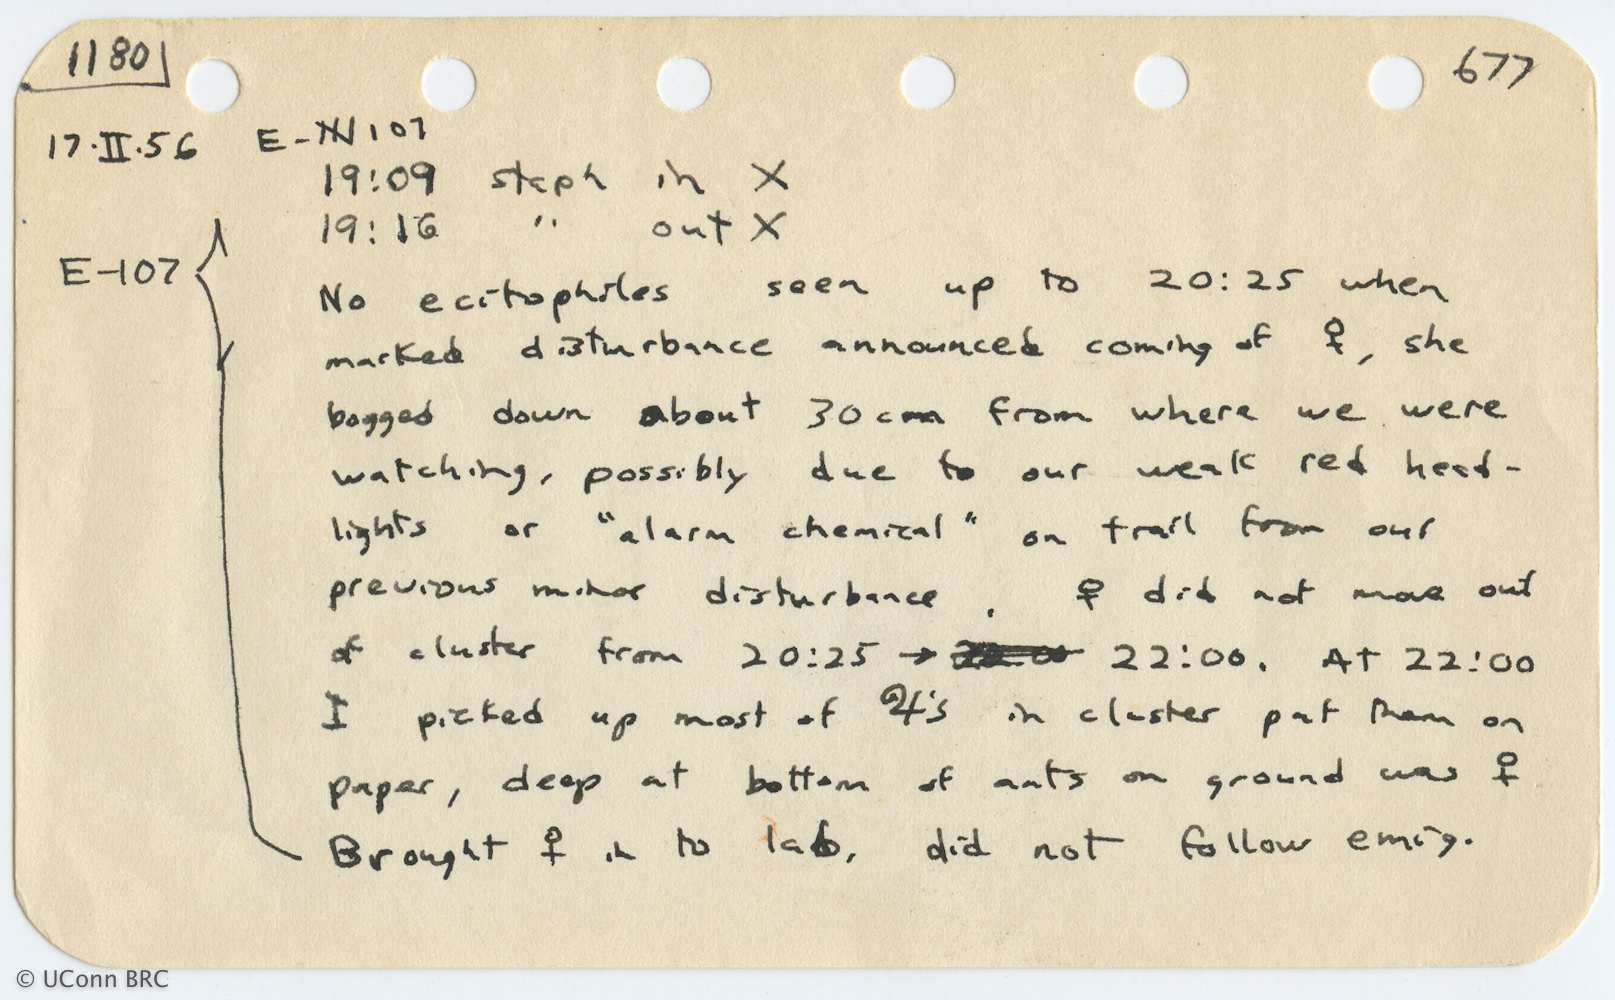 1180
677
17.II.56 E-107
19:09 staph in X
19:16 " out X
E-107
No ecitophiles seen up to 20:25 when
marked disturbance announced coming of ♀, she
bogged down about 30cm from where we were
watching, possibly due to our weak red head-
lights or "alarm chemical" on trail from our
previous minor disturbance. ♀ did not move out
of cluster from 20:25 → 22:00. At 22:00
I picked up most of in cluster put them on
paper, deep at bottom of ants on ground was ♀
Brought ♀ in to lab, did not follow emig.
© UConn BRC